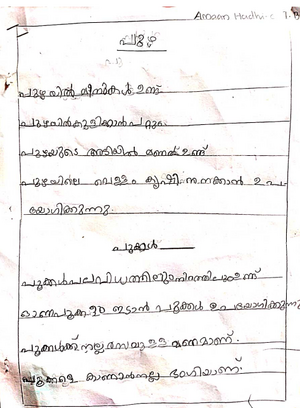 Amaan Hadhi-c 7.B
പുഴ
പുഴയിൽ മീനുകൾ ഉണ്ട്
പുഴയിൽകുളിക്കാൻ പറ്റും
പുഴയുടെ അടിയിൽ മണൽ ഉണ്ട്
പുഴയിലെ വെള്ളം കൃഷി നനക്കാൻ ഉപ
യോഗിക്കുന്നു.
പൂക്കൾ
പൂക്കൾപലവിധത്തിലുംനിറത്തിലുംഉണ്ട്
ഓണപൂക്കളം ഇടാൻ പൂക്കൾ ഉപയോഗിക്കുന്നു
പൂക്കൾക്ക് നല്ല മണമാണ്.
പൂക്കളെ കാണാൻനല്ല ഭംഗിയാണ്